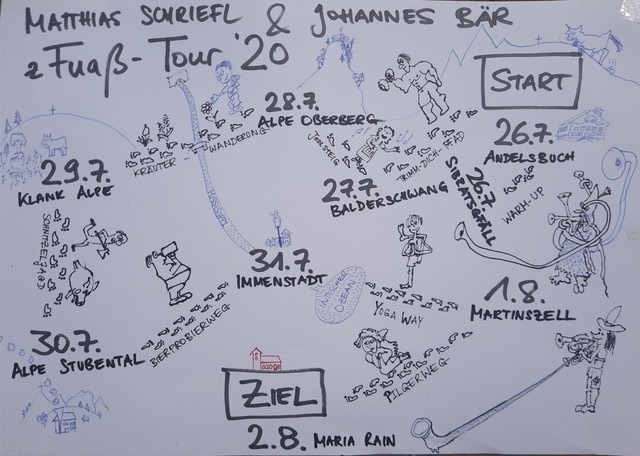 MATTHIAS SCHRIEFL & JOHANNES BÄR
z Fuaß-Tour '20
START
26.7.
ANDELSBUCH
WARM-UP
26.7
SIBRATSGFÄLL
TRIMM-DICH-PFAD
27.7.
BALDERSCHWANG
JENSTEIG
28.7.
ALPE OBERBERG
KRÄUTER-WANDERUNG
29.7.
KLANK ALPE
SCHNITZELJAGD
30.7.
ALPE STUBENTAL
BIERPROBIERWEG
31.7.
IMMENSTADT
OZEAN
YOGA WAY
1.8.
MARTINSZELL
PILGERWEG
ZIEL
2.8. MARIA RAIN